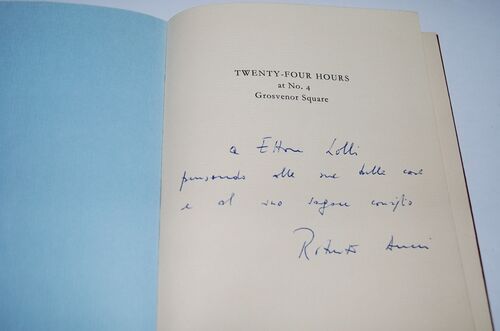 TWENTY-FOUR HOURS
at No. 4
Grosvenor Square
a Ettore Lolli
pensando alle sue belle cose
e al suo saggio consiglio
Roberto Ducci